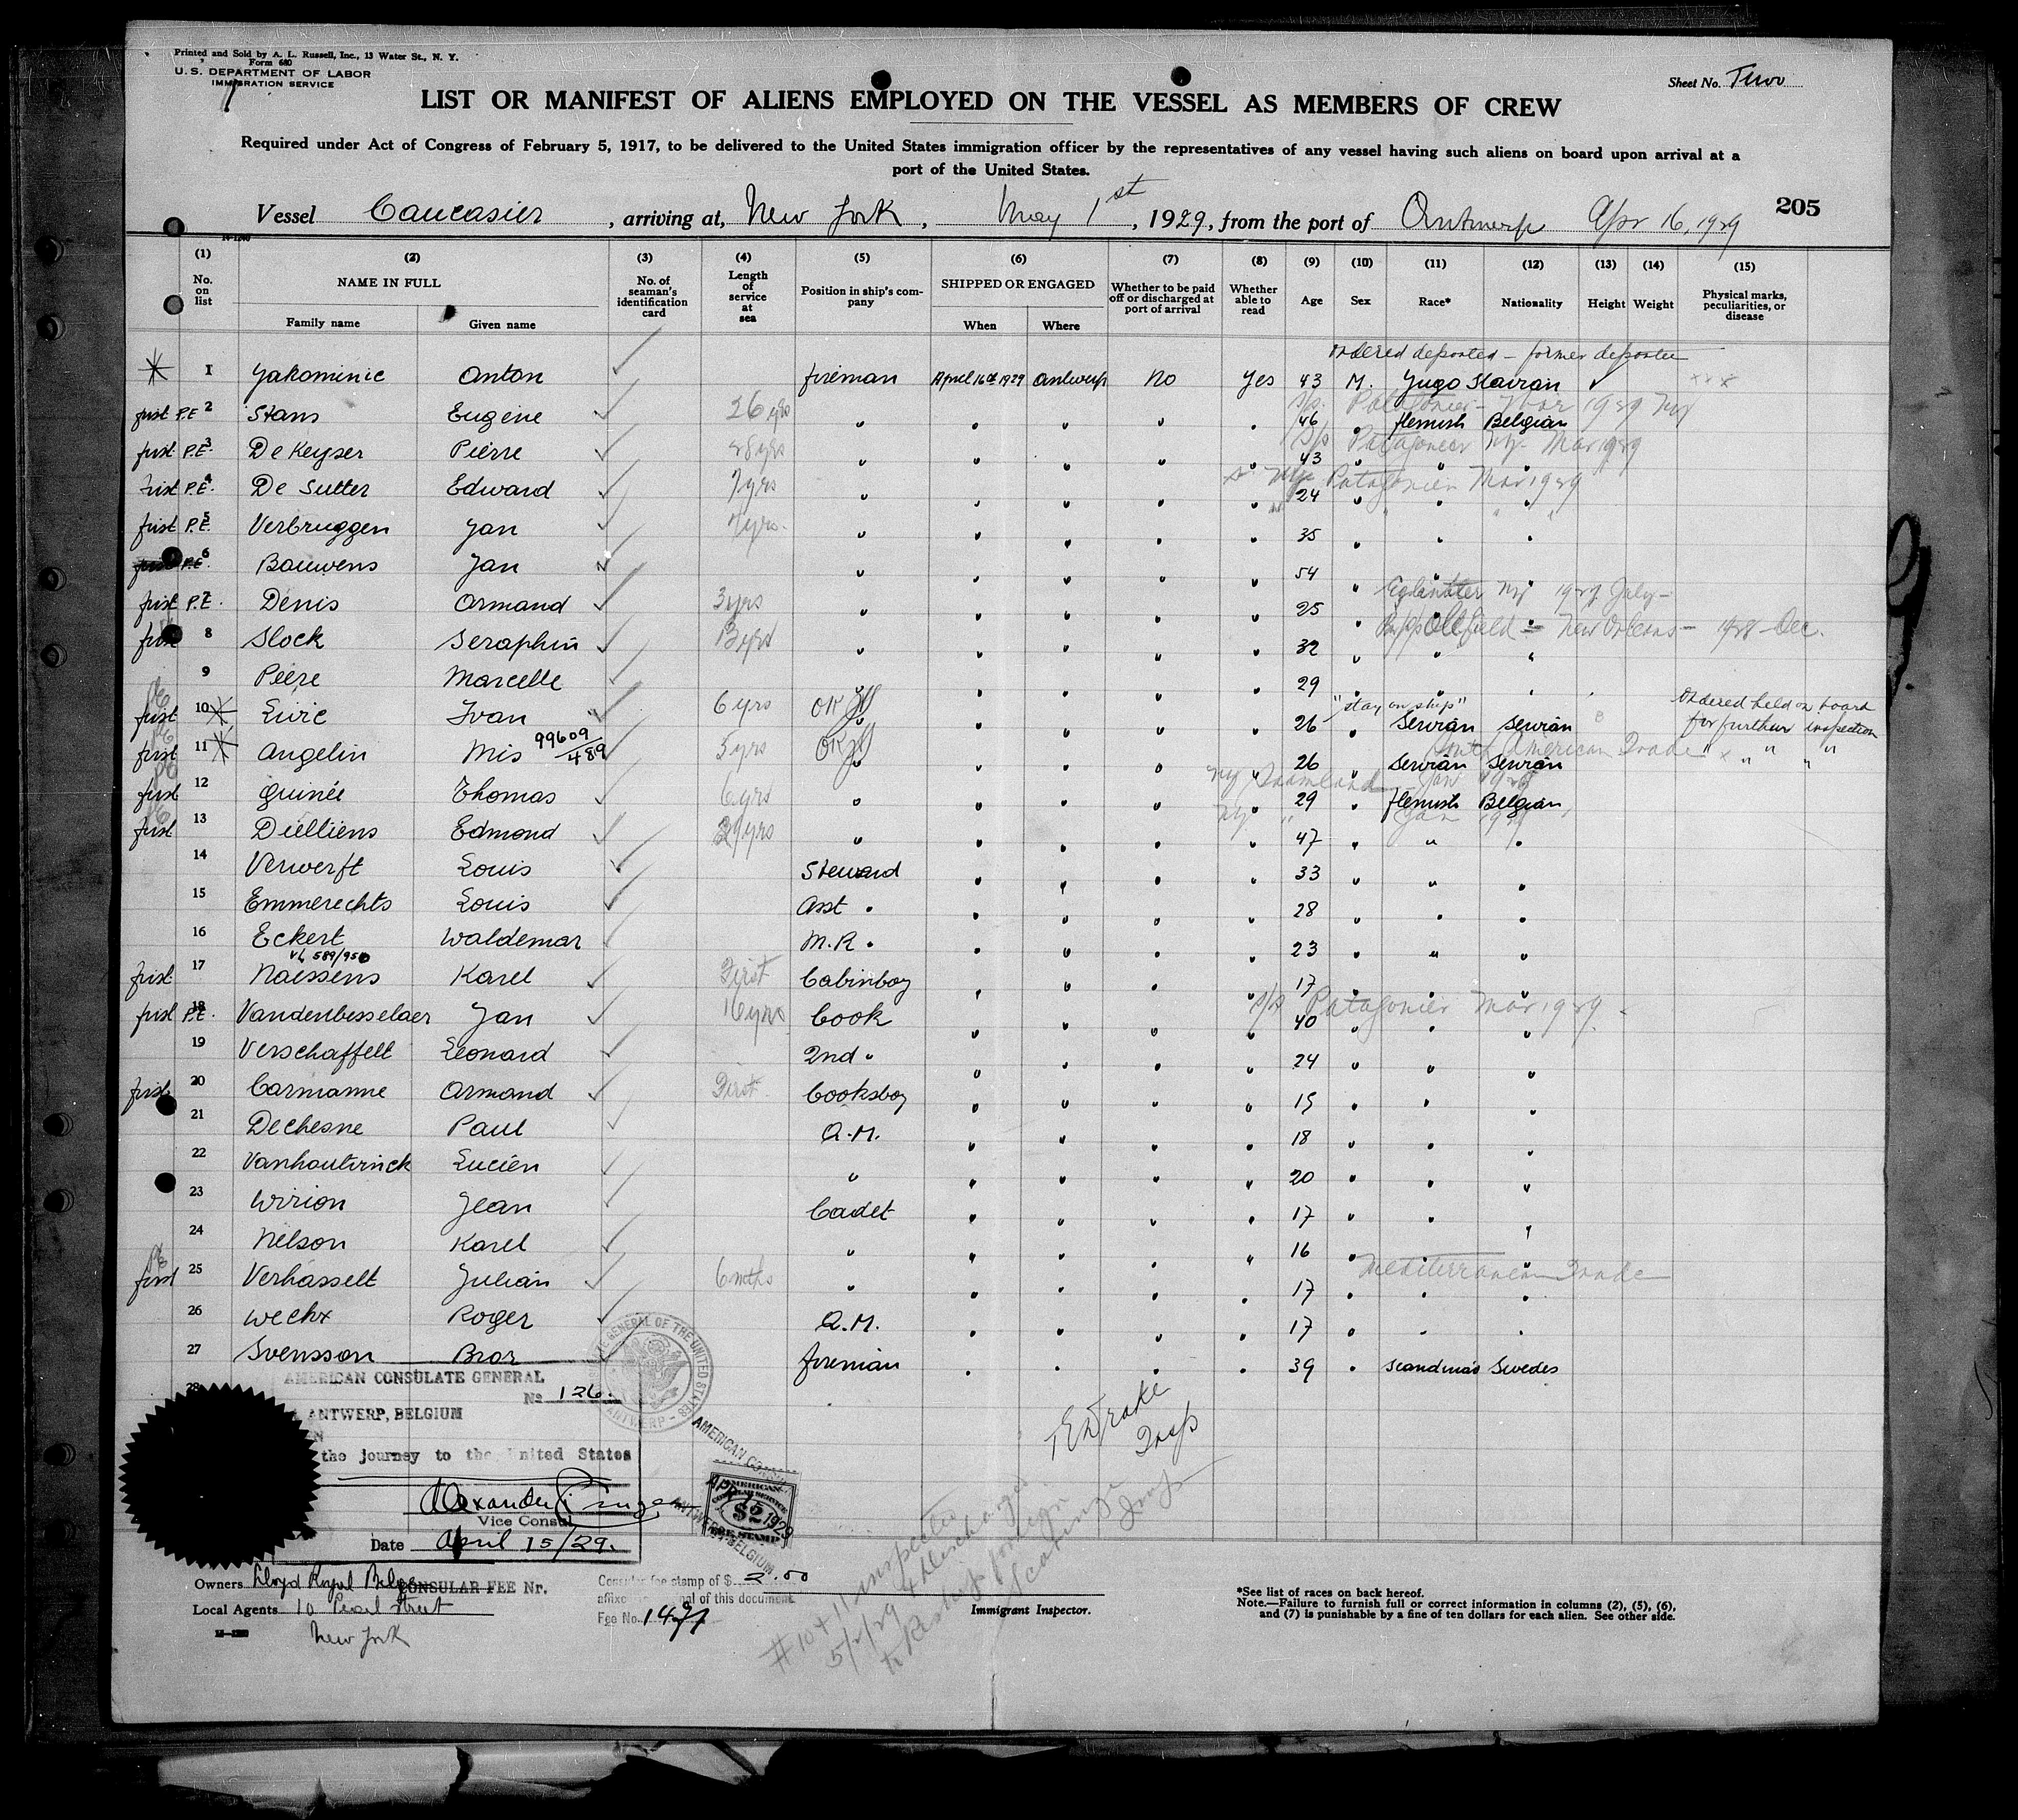 Printed and Sold by A. L. Russell, Inc., 13 Water St., N. Y.
Form 680
U. S. DEPARTMENT OF LABOR
IMMIGRATION SERVICE
Sheet No. Two
LIST OR MANIFEST OF ALIENS EMPLOYED ON THE VESSEL AS MEMBERS OF CREW
Required under Act of Congress of February 5, 1917, to be delivered to the United States immigration officer by the representatives of any vessel having such aliens on board upon arrival at a
port of the United States.
Vessel Caucasier, arriving at, New York, May 1st, 1929, from the port of Antwerp Apr 16, 1929
205
(1) (2) (3) (4) (5) (6) (7) (8) (9) (10) (11) (12) (13) (14) (15)
No. on list NAME IN FULL Family name Given name No. of seaman's identification card Length of service at sea Position in ship's company SHIPPED OR ENGAGED When Where Whether to be paid off or discharged at port of arrival Whether able to read Age Sex Race* Nationality Height Weight Physical marks, peculiarities, or disease
ordered deported - former deportee
1 Yakominic Anton fireman April 16th 1929 Antwerp No Yes 43 M. Yugo Slavian
Patagonier 1929 NY
first P.E 2 Stans Eugène 26 yrs " " " " " 46 " flemish Belgian
Patagonier NY Mar 1929
first P.E. 3 De Keyser Pierre 28 yrs " " " " " 43 " " "
Patagonier Mar 1929
first P.E. 4 De Sutter Edward 7 yrs " " " " " 24 " " "
first P.E. 5 Verbruggen Jan " " " " " 35 " " "
first P.E. 6 Bauwens Jan " " " " " 54 " " "
NY July
first P.E. 7 Denis Armand 3 yrs " " " " " 25 " " "
New Orleans - 1928 - Dec.
first 8 Slock Seraphin 3 yrs " " " " " 32 " " "
9 Peere Marcelle " " " " " 29 " " "
"stay on ship" Ordered held on board
first 10 Livic Ivan 6 yrs OK " " " " " 26 " Servian Servian for further inspection
99609/489
South American Trade
first 11 Angelin Mis 5 yrs OK " " " " " 26 " Servian Servian " " "
first 12 Guinée Thomas 6 yrs " " " " " 29 " flemish Belgian
first 13 Dielliens Edmond " " " " " 47 " " "
14 Verwerft Louis Steward " " " " 33 " " "
15 Emmerechts Louis Asst " " " " " 28 " " "
16 Eckert Waldemar M.R. " " " " " 23 " " "
589/950
first 17 Naessens Karel First Cabinboy " " " " 17 " " "
Patagonier Mar 1929
first P.E. 18 Vandenbesselaer Jan 16 yrs Cook " " " " 40 " " "
19 Verschaffelt Leonard 2nd " " " " " 24 " " "
first 20 Carmanne Armand First Cooksboy " " " " 15 " " "
21 Dechesne Paul A.M. " " " " 18 " " "
22 Vanhouterinck Lucien " " " " " 20 " " "
23 Wirion Jean Cadet " " " " 17 " " "
24 Nelson Karel " " " " " 16 " " "
Mediterranean Trade
first 25 Verhasselt Julian 6 mths " " " " " 17 " " "
26 Weckx Roger A.M. " " " " 17 " " "
27 Svensson Bror fireman " " " " 39 " Scandinas Swedes
28
AMERICAN CONSULATE GENERAL
No 126.
ANTWERP, BELGIUM
the journey to the United States
Vice Consul
Date April 15/29.
GENERAL OF THE UNITED STATES
ANTWERP
AMERICAN CONSUL
AMERICAN
CONSULAR SERVICE
$2
FEE STAMP
APR 15 1929
ANTWERP BELGIUM
Drake
Insp
Owners Lloyd Royal Belge
CONSULAR FEE Nr.
Local Agents 10 Pearl Street
New York
Consular fee stamp of $ 2.00
affixed of this document.
Fee No. 1497
#10 + 11 inspected
5/2/29
Immigrant Inspector.
*See list of races on back hereof.
Note.—Failure to furnish full or correct information in columns (2), (5), (6),
and (7) is punishable by a fine of ten dollars for each alien. See other side.